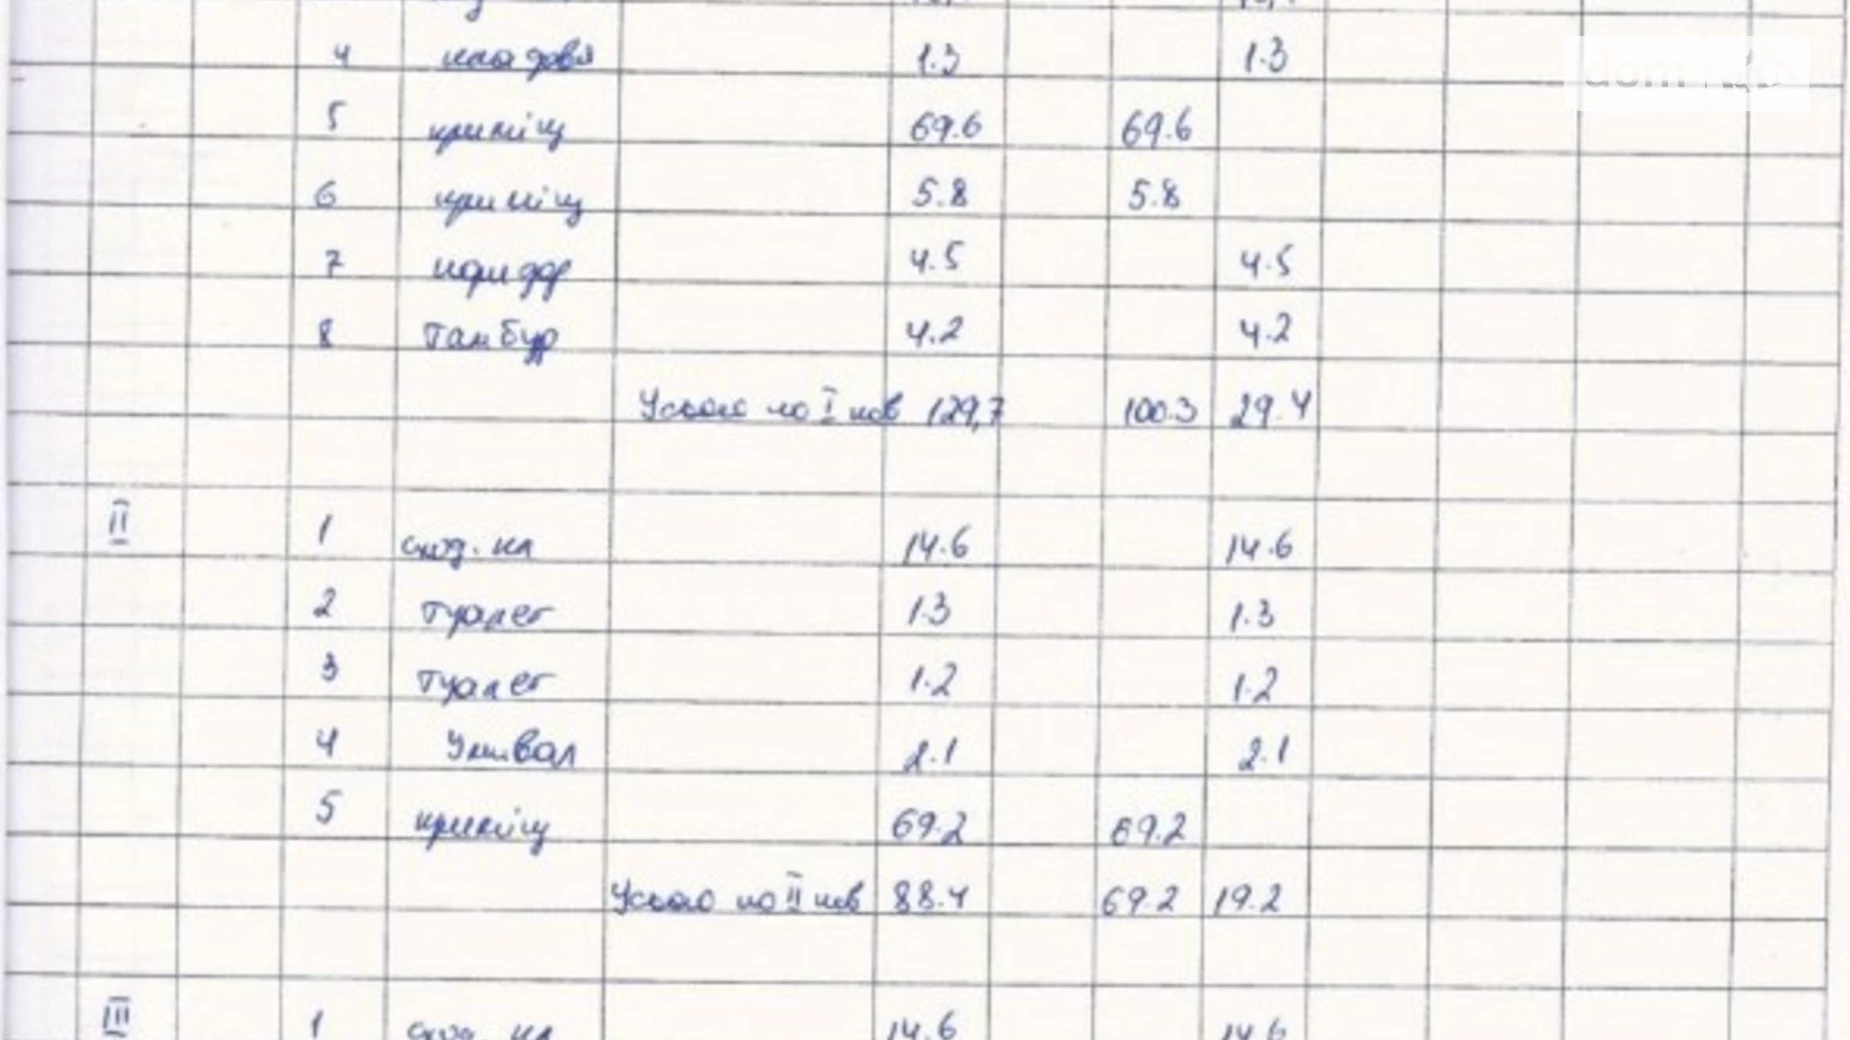 4 кладова 1.3 1.3
5 приміщ 69.6 69.6
6 приміщ 5.8 5.8
7 коридор 4.5 4.5
8 Тамбур 4.2 4.2
Усього по I пов 129,7 100.3 29.4
II 1 сход. кл 14.6 14.6
2 Туалет 1.3 1.3
3 Туалет 1.2 1.2
4 Умивал 2.1 2.1
5 приміщ 69.2 69.2
Усього по II пов 88.4 69.2 19.2
III 1 сход. кл 14.6 14.6